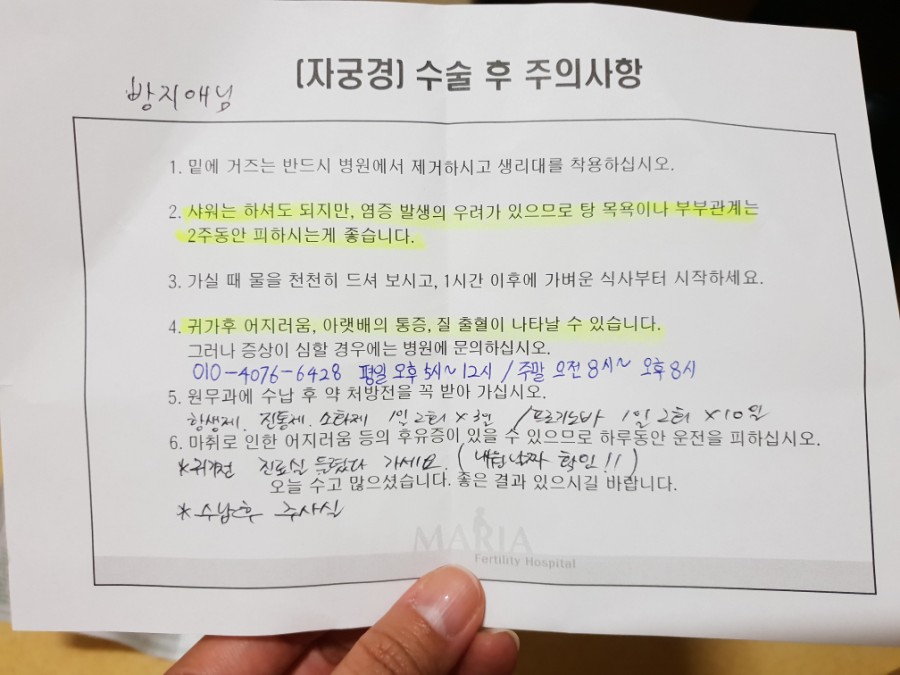 방지애님
(자궁경) 수술 후 주의사항
1. 밑에 거즈는 반드시 병원에서 제거하시고 생리대를 착용하십시오.
2. 샤워는 하셔도 되지만, 염증 발생의 우려가 있으므로 탕 목욕이나 부부관계는
2주동안 피하시는게 좋습니다.
3. 가실 때 물을 천천히 드셔 보시고, 1시간 이후에 가벼운 식사부터 시작하세요.
4. 귀가후 어지러움, 아랫배의 통증, 질 출혈이 나타날 수 있습니다.
그러나 증상이 심할 경우에는 병원에 문의하십시오.
010-4076-6428 평일 오후 5시~12시 / 주말 오전 8시~ 오후 8시
5. 원무과에 수납 후 약 처방전을 꼭 받아 가십시오.
항생제. 진통제. 소화제 1일 2회 × 3일 / 프로기노바 1일 2회 × 10일
6. 마취로 인한 어지러움 등의 후유증이 있을 수 있으므로 하루동안 운전을 피하십시오.
*귀가전 진료실 들렸다 가세요. (내원날짜 확인!!)
오늘 수고 많으셨습니다. 좋은 결과 있으시길 바랍니다.
*수납후 주사실
MARIA
Fertility Hospital